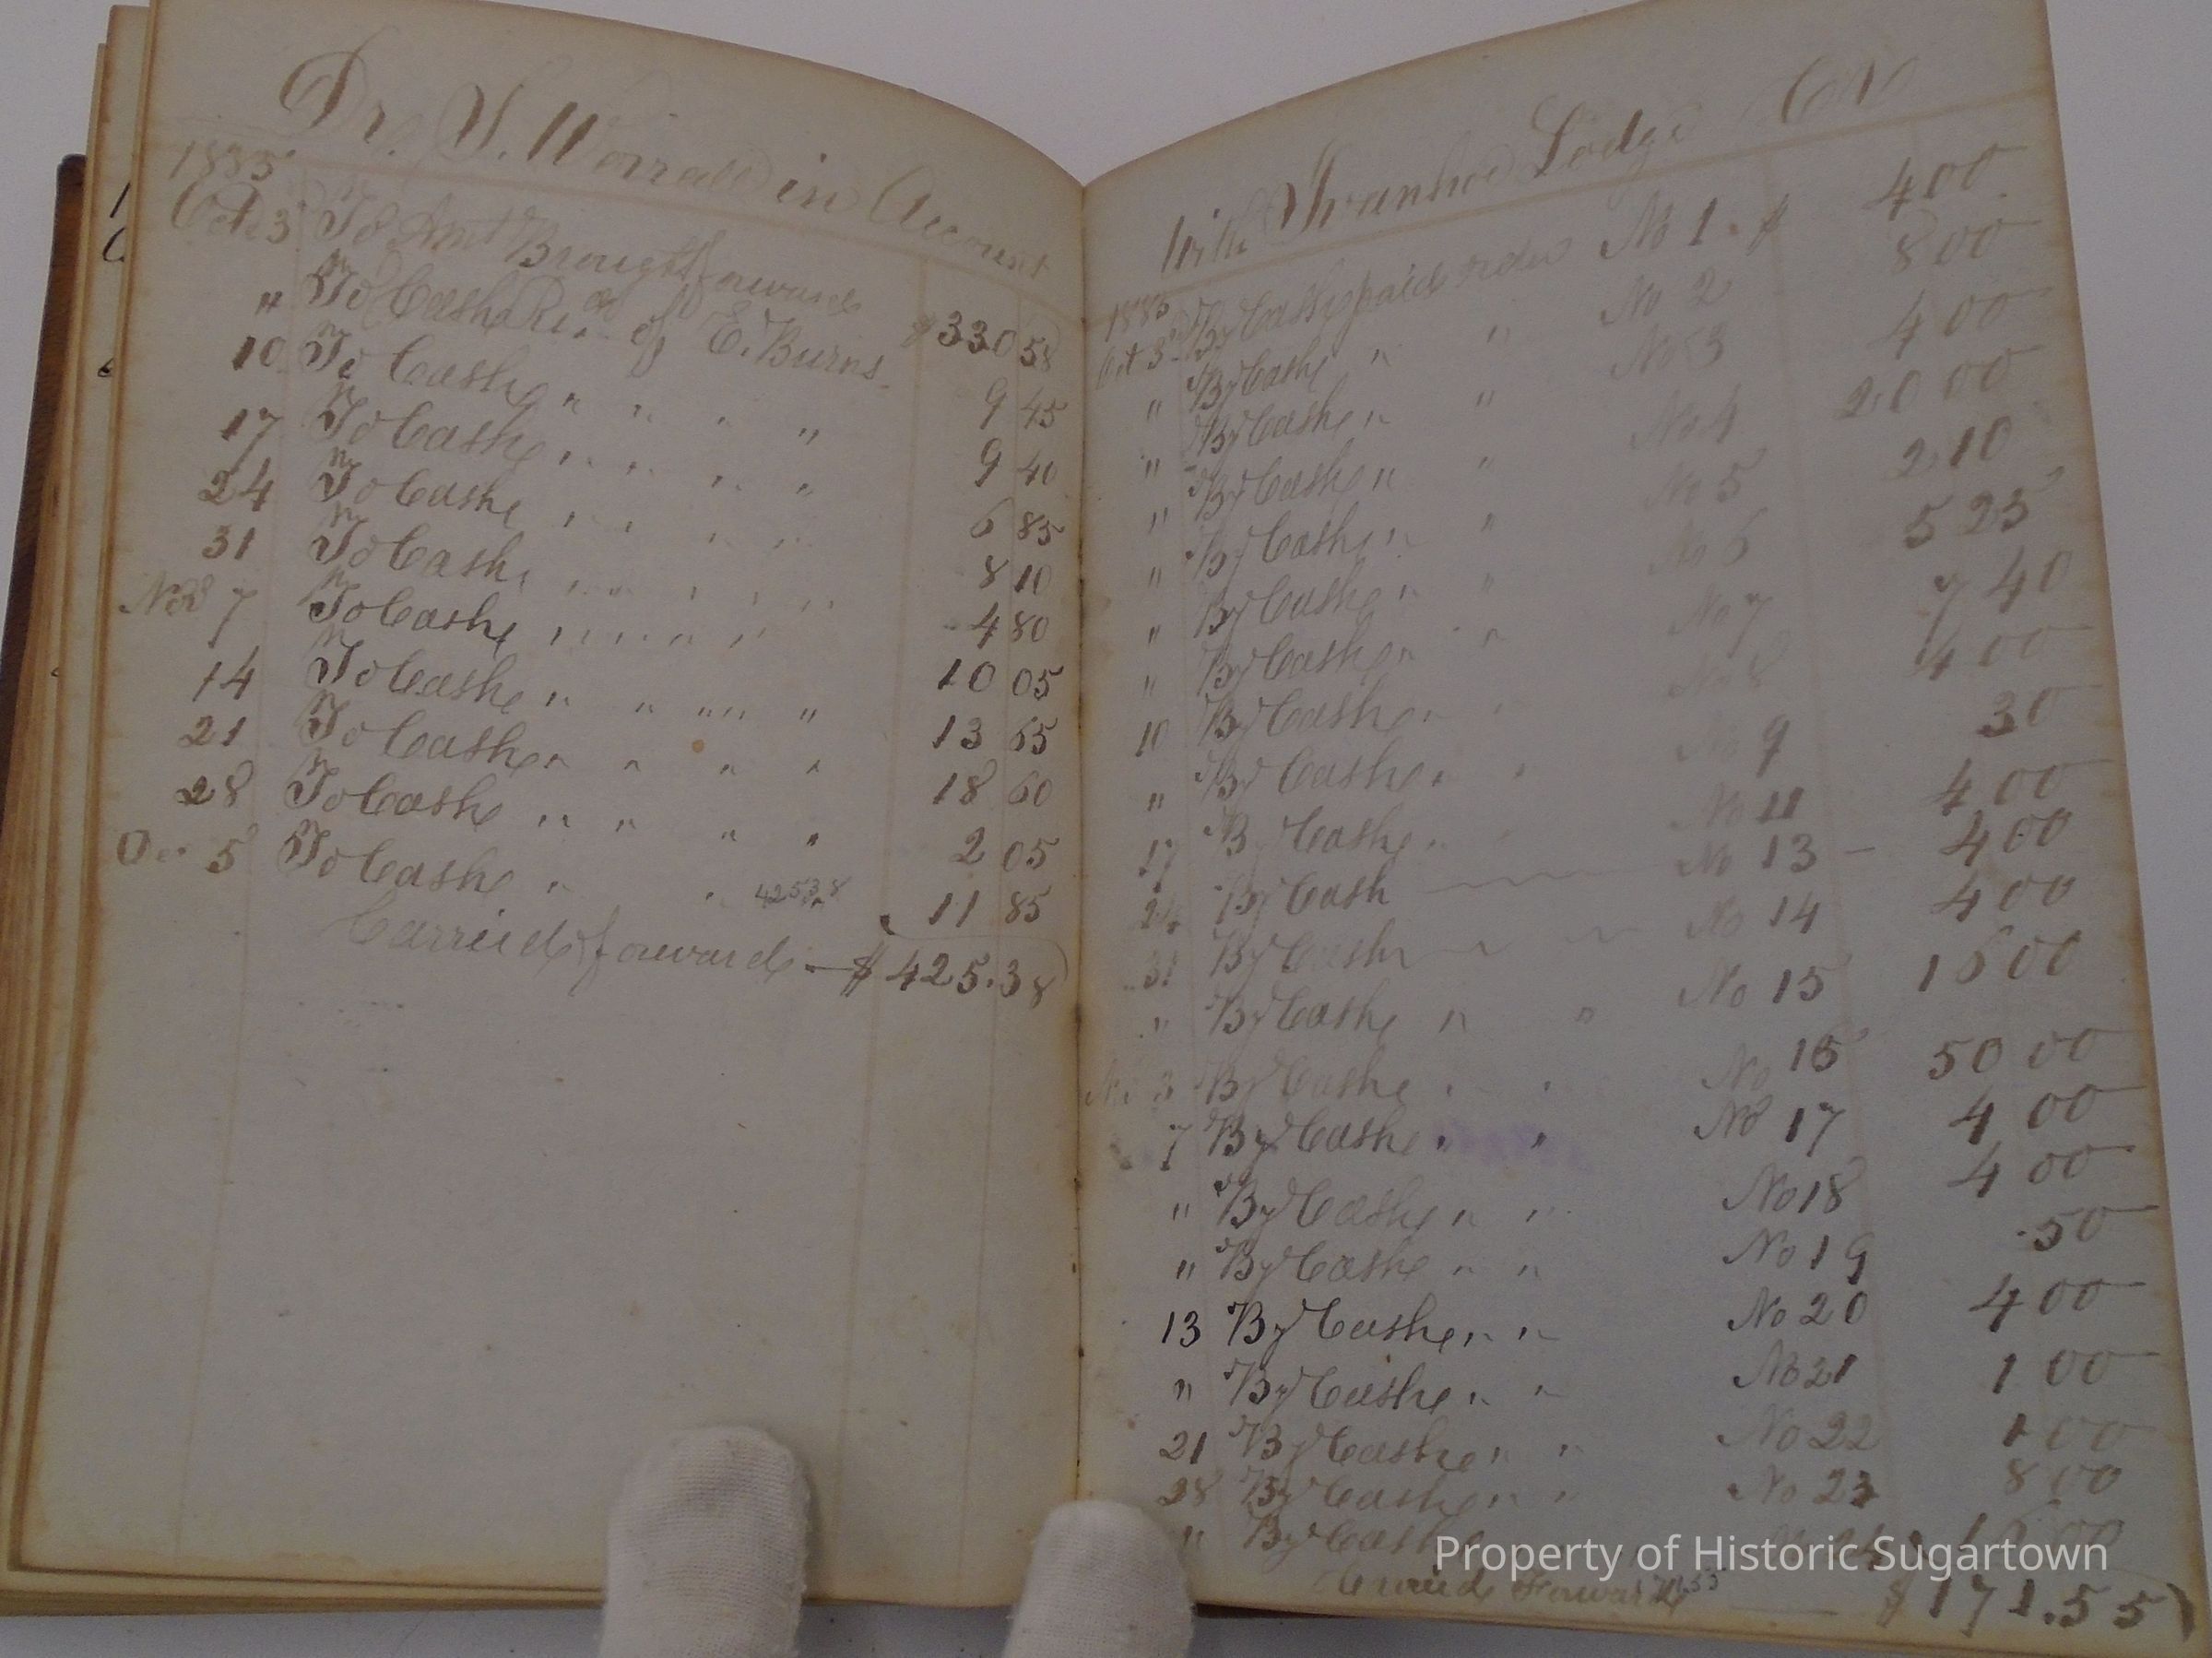 Dr. S. Worrall in Account
1885
Oct 3 To Amt Brought forward $330 58
" To Cash Recd of E. Burns 9 45
10 To Cash " " " " 9 40
17 To Cash " " " " 6 85
24 To Cash " " " " 8 10
31 To Cash " " " " 4 80
Nov 7 To Cash " " " " 10 05
14 To Cash " " " " 13 65
21 To Cash " " " " 18 60
28 To Cash " " " " 2 05
Dec 5 To Cash " " 425.38 11 85
Carried forward — $425.38
With Ivanhoe Lodge
1885
Oct 3 By Cash paid order No 1. $ 4 00
" By Cash " " No 2 8 00
" By Cash " " No 3 4 00
" By Cash " " No 4 20 00
" By Cash " " No 5 2 10
" By Cash " " No 6 5 25
" By Cash " " No 7 7 40
10 By Cash " " No 8 4 00
" By Cash " " No 9 30
17 By Cash " No 11 4 00
24 By Cash No 13 — 4 00
31 By Cash No 14 4 00
" By Cash " " No 15 16 00
3 By Cash " " No 16 50 00
7 By Cash " " No 17 4 00
" By Cash " " No 18 4 00
" By Cash " " No 19 .50
13 By Cash " " No 20 4 00
" By Cash " " No 21 1 00
21 By Cash " " No 22 1 00
28 By Cash " " No 23 8 00
" By Cash
Carried Forward — $171.55
Property of Historic Sugartown